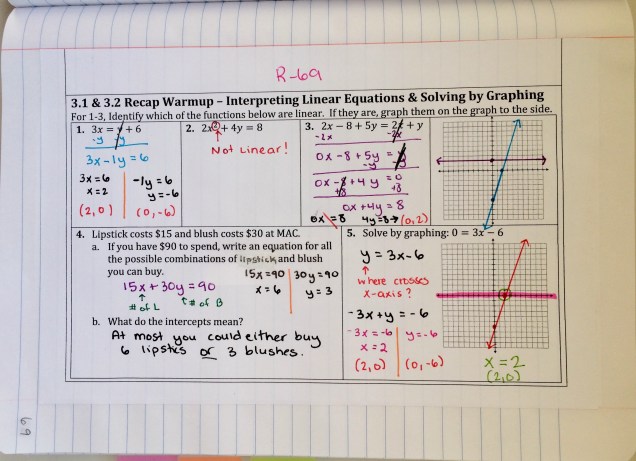 R-69
3.1 & 3.2 Recap Warmup – Interpreting Linear Equations & Solving by Graphing
For 1-3, Identify which of the functions below are linear. If they are, graph them on the graph to the side.
1. 3x = y + 6
-y -y
3x - 1y = 6
3x = 6
x = 2
(2,0)
-1y = 6
y = -6
(0,-6)
2. 2x② + 4y = 8
Not Linear!
3. 2x – 8 + 5y = 2x + y
-2x -2x
0x - 8 + 5y = y
-y -y
0x - 8 + 4y = 0
+8 +8
0x + 4y = 8
0x = 8
4y = 8 → (0,2)
4. Lipstick costs $15 and blush costs $30 at MAC.
a. If you have $90 to spend, write an equation for all
the possible combinations of lipstick and blush
you can buy.
15x = 90
x = 6
30y = 90
y = 3
15x + 30y = 90
# of L
# of B
b. What do the intercepts mean?
At most you could either buy
6 lipstks or 3 blushes.
5. Solve by graphing: 0 = 3x – 6
y = 3x - 6
where crosses
x-axis?
-3x + y = -6
-3x = -6
x = 2
(2,0)
y = -6
(0,-6)
x = 2
(2,0)
69